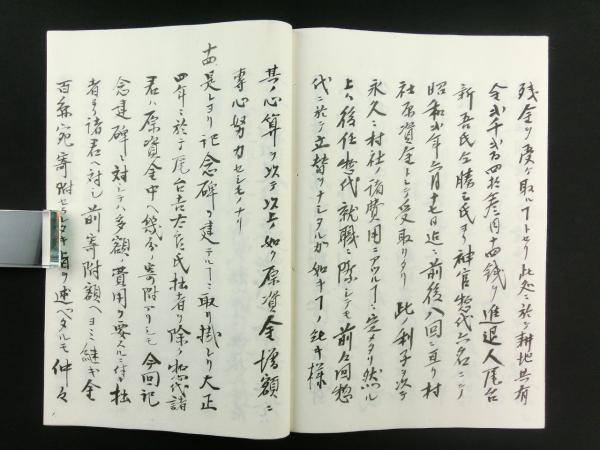 残金ヲ受ケ取ルコトセリ此処ニ於テ耕地共有
金弐千弐百四拾参円十四銭ヲ進退人尾台
新吾氏全勝三氏ヨリ神官惣代六名ニシテ
昭和弐年三月十七日迄ニ前後八回ニ亘リ村
社原資金トシテ受取リタリ 此利子ヲ以テ
永久ニ村社ノ諸費用ニアツルコトニ定メタリ然ル
上ハ後任惣代就職ニ際シテモ前々回惣
代ニ於テ立替ヲナシタルカ如キコトノ無キ様
其ノ心算ヲ以テ以上ノ如ク原資金増額ニ
専心努力セシモノナリ
十四、是レヨリ記念碑ヲ建テルコトニ取リ掛レリ大正
四年ニ於テ尾台吉左衛氏拙者ヲ除ク惣代諸
君ハ原資金中ヘ幾分ノ寄附アリシモ今回記
念建碑ニ対シテハ多額ノ費用ヲ要スルニ付拙
者ヨリ諸君ヘ対シ前寄附額ヘヨミ継ギ金
百円宛寄附セラレタキ旨ヲ述ベタルモ仲々